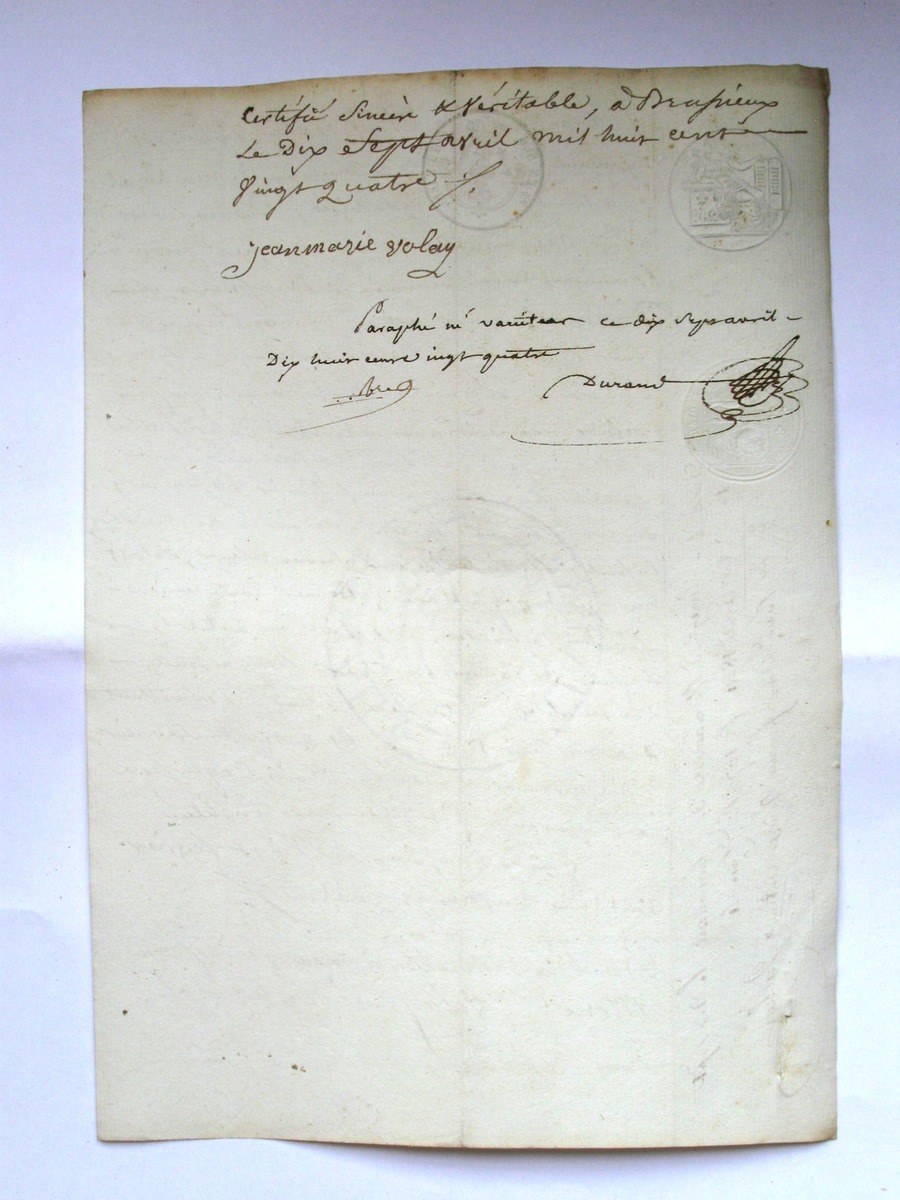 Certifié Sincère & Véritable, à Beupieux
Le Dix e Sept avril mil huit cent
Vingt quatre ./.
jeanmarie volay
Paraphé né varieteur ce dix Sept avril
Dix huit cent vingt quatre
Durand